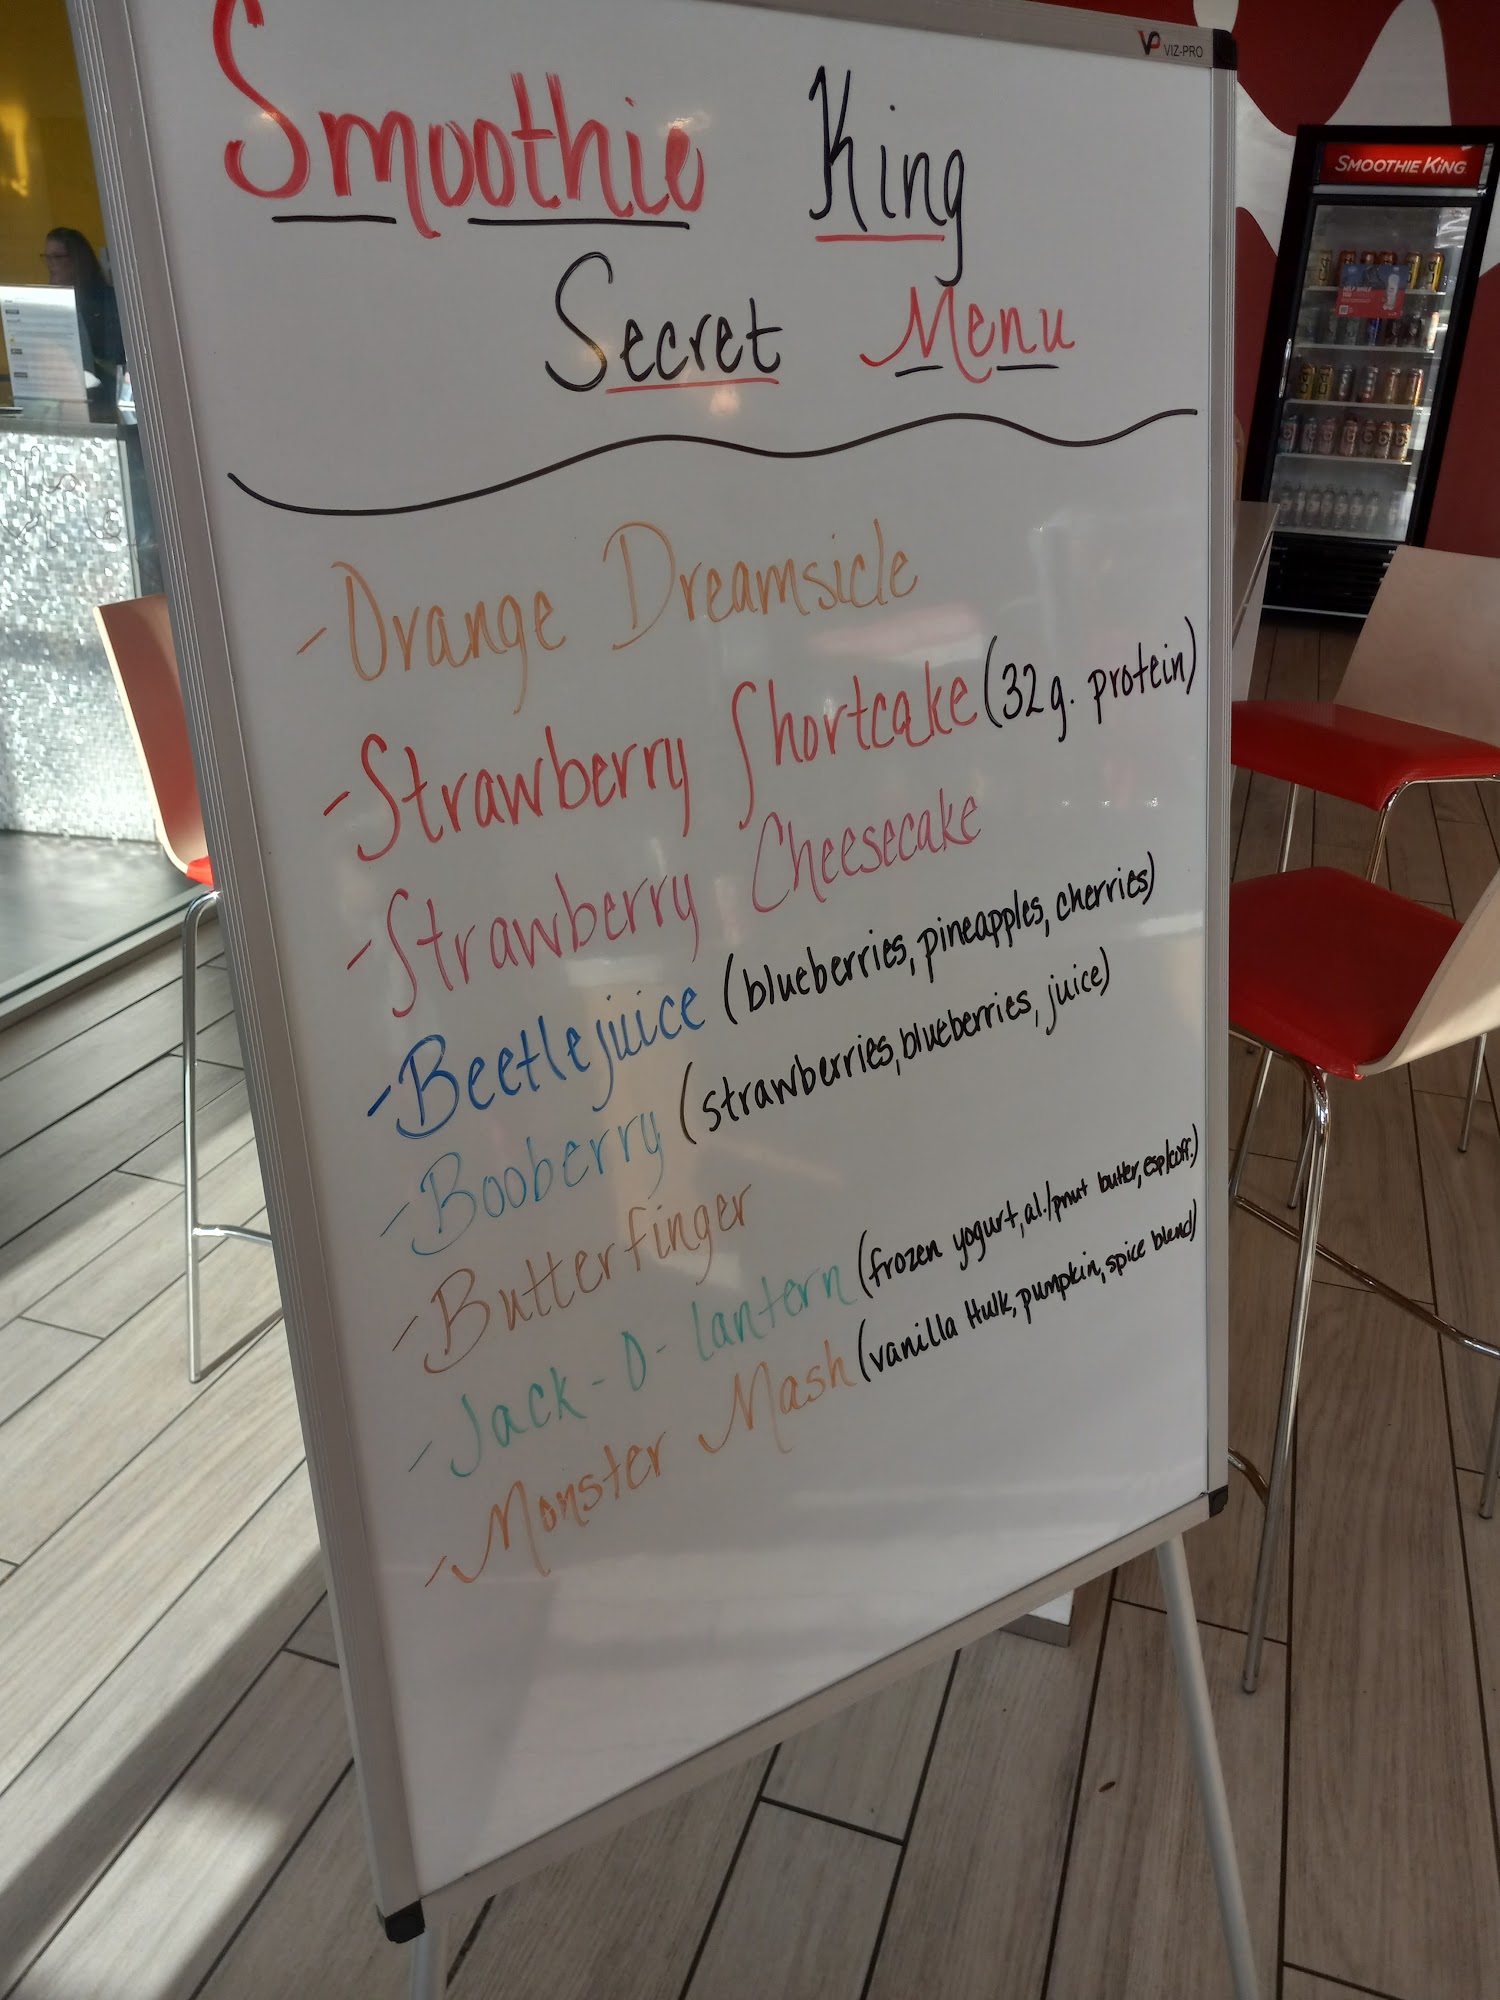 VP VIZ-PRO
Smoothie King
Secret Menu
SMOOTHIE KING
- Orange Dreamsicle
- Strawberry Shortcake (32g. protein)
- Strawberry Cheesecake
- Beetlejuice (blueberries, pineapples, cherries)
- Booberry (strawberries, blueberries, juice)
- Butterfinger
- Jack-O-lantern (frozen yogurt, al./pnut butter, esp/coff.)
- Monster Mash (vanilla Hulk, pumpkin, spice blend)